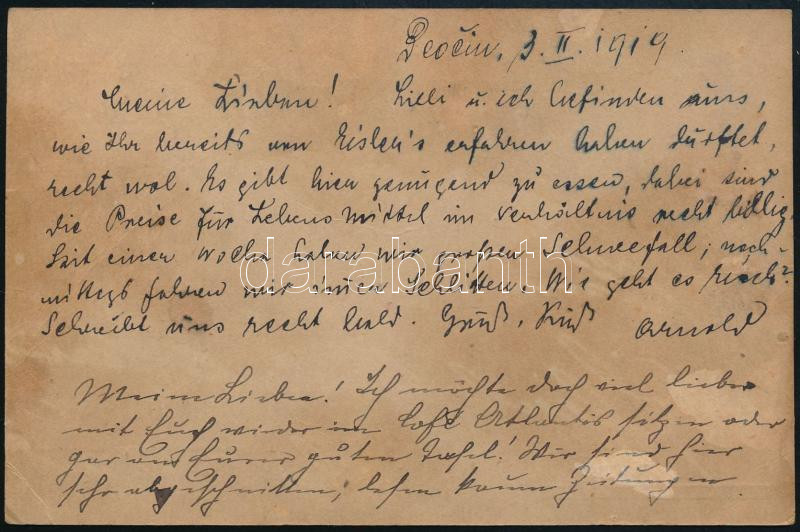 Beočin, 3. II. 1919.
Meine Lieben! Lilli u. ich befinden uns,
wie Ihr bereits von Eisler's erfahren haben dürftet,
recht wol. Es gibt hier genügend zu essen, dabei sind
die Preise für Lebensmittel im Verhältnis recht billig.
Seit einer Woche haben wir großen Schneefall; nach-
mittags fahren wir immer Schlitten. Wie geht es Euch?
Schreibt uns recht bald. Gruß, Kuß Arnold
Meine Lieben! Ich möchte doch viel lieber
mit Euch wieder im Café Atlantis sitzen oder
gar an Eurer guten Tafel! Wir sind hier
sehr abgeschnitten, lesen kaum Zeitungen
darabanth